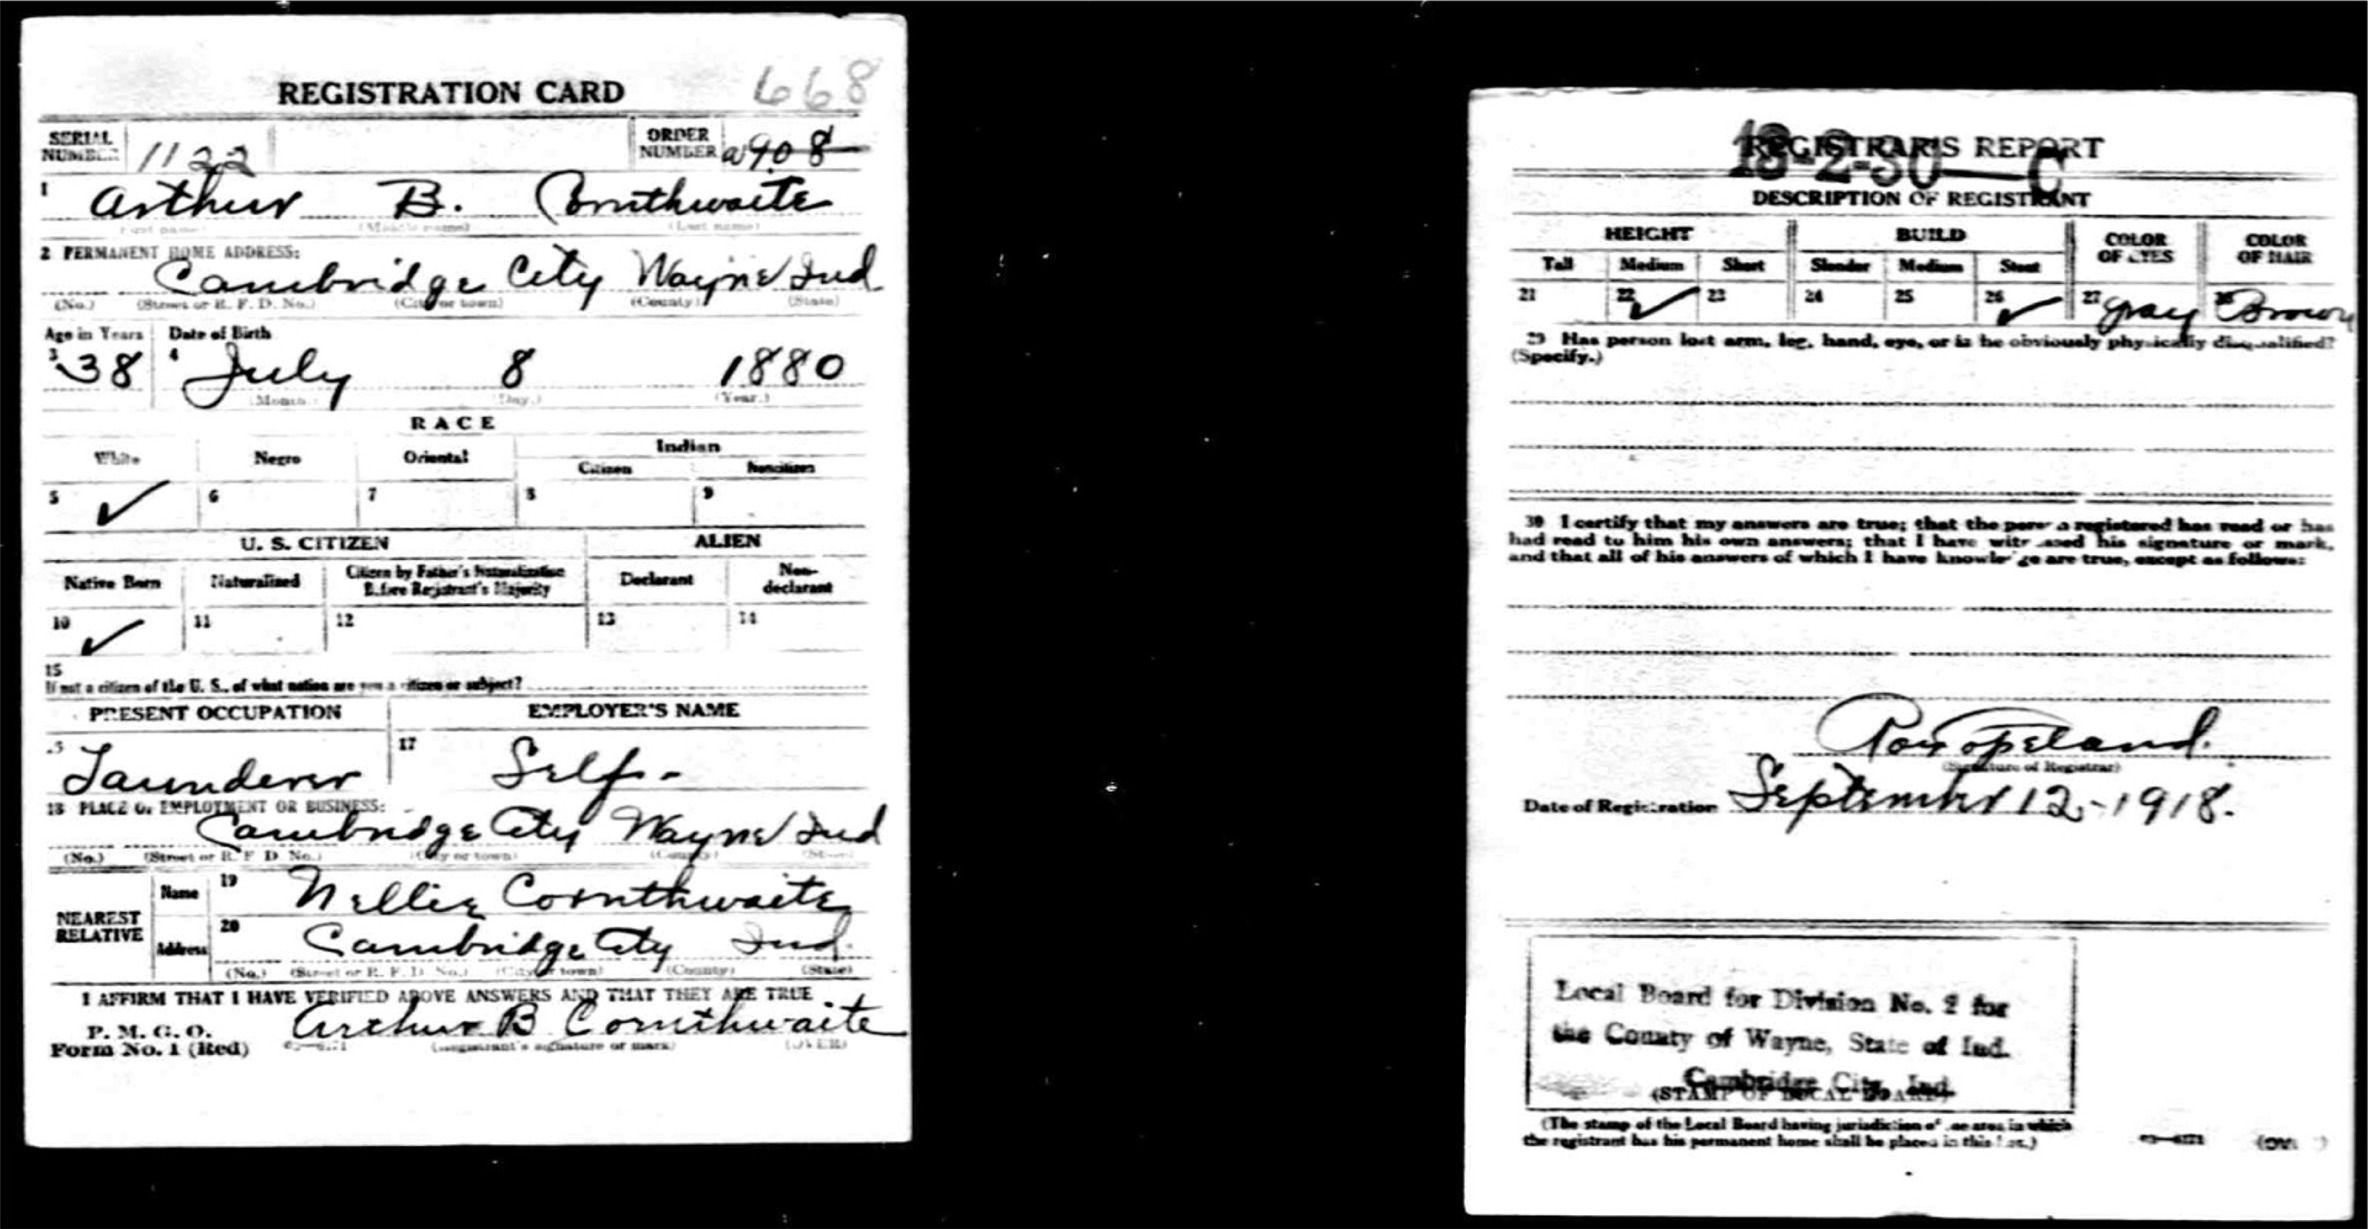 REGISTRATION CARD 668
SERIAL NUMBER 1122 ORDER NUMBER a908
1 Arthur B. Cornthwaite
(First name) (Middle name) (Last name)
2 PERMANENT HOME ADDRESS:
Cambridge City Wayne Ind
(No.) (Street or R. F. D. No.) (City or town) (County) (State)
Age in Years Date of Birth
3 38 4 July 8 1880
(Month.) (Day.) (Year.)
RACE
White Negro Oriental Indian
Citizen Noncitizen
5 ✓ 6 7 8 9
U. S. CITIZEN ALIEN
Native Born Naturalized Citizen by Father's Naturalization Before Registrant's Majority Declarant Non-declarant
10 ✓ 11 12 13 14
15
If not a citizen of the U. S., of what nation are you a citizen or subject?
PRESENT OCCUPATION EMPLOYER'S NAME
Launderer 17 Self-
18 PLACE OF EMPLOYMENT OR BUSINESS:
Cambridge City Wayne Ind
(No.) (Street or R. F. D. No.) (City or town) (County) (State)
NEAREST RELATIVE
Name 19 Nellie Cornthwaite
Address 20 Cambridge City Ind.
(No.) (Street or R. F. D. No.) (City or town) (County) (State)
I AFFIRM THAT I HAVE VERIFIED ABOVE ANSWERS AND THAT THEY ARE TRUE
P. M. G. O.
Form No. 1 (Red) Arthur B Cornthwaite
(Registrant's signature or mark) (OVER)
REGISTRAR'S REPORT
13-2-30—C
DESCRIPTION OF REGISTRANT
HEIGHT BUILD COLOR OF EYES COLOR OF HAIR
Tall Medium Short Slender Medium Stout
21 22 ✓ 23 24 25 26 ✓ 27 Gray 28 Brown
29 Has person lost arm, leg, hand, eye, or is he obviously physically disqualified?
(Specify.)
30 I certify that my answers are true; that the person registered has read or has
had read to him his own answers; that I have witnessed his signature or mark,
and that all of his answers of which I have knowledge are true, except as follows:
Roy Copeland.
(Signature of Registrar)
Date of Registration September 12-1918.
Local Board for Division No. 2 for
the County of Wayne, State of Ind.
Cambridge City, Ind.
(STAMP OF LOCAL BOARD)
(The stamp of the Local Board having jurisdiction of the area in which
the registrant has his permanent home shall be placed in this box.)